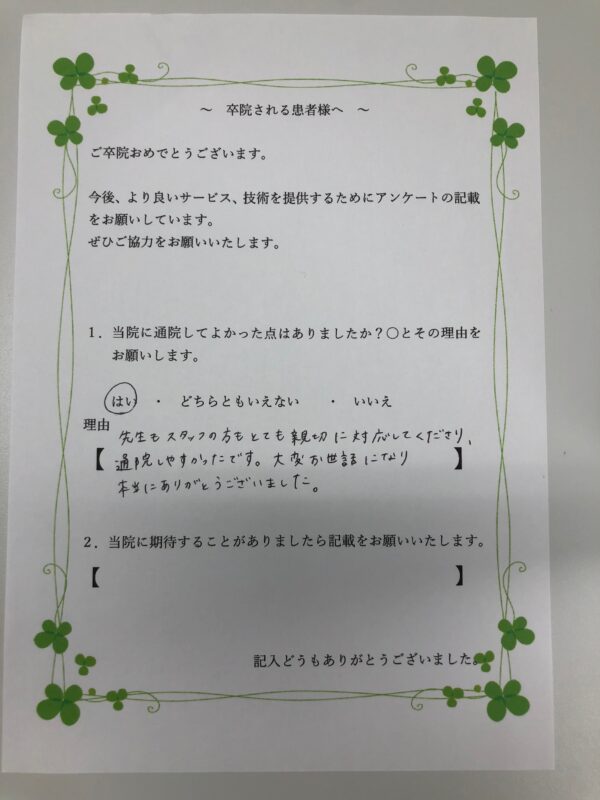 ～ 卒院される患者様へ ～
ご卒院おめでとうございます。
今後、より良いサービス、技術を提供するためにアンケートの記載
をお願いしています。
ぜひご協力をお願いいたします。
１．当院に通院してよかった点はありましたか？〇とその理由を
お願いします。
はい ・ どちらともいえない ・ いいえ
理由
先生もスタッフの方もとても親切に対応してくださり、
【 通院しやすかったです。大変お世話になり 】
本当にありがとうございました。
２．当院に期待することがありましたら記載をお願いいたします。
【 】
記入どうもありがとうございました。